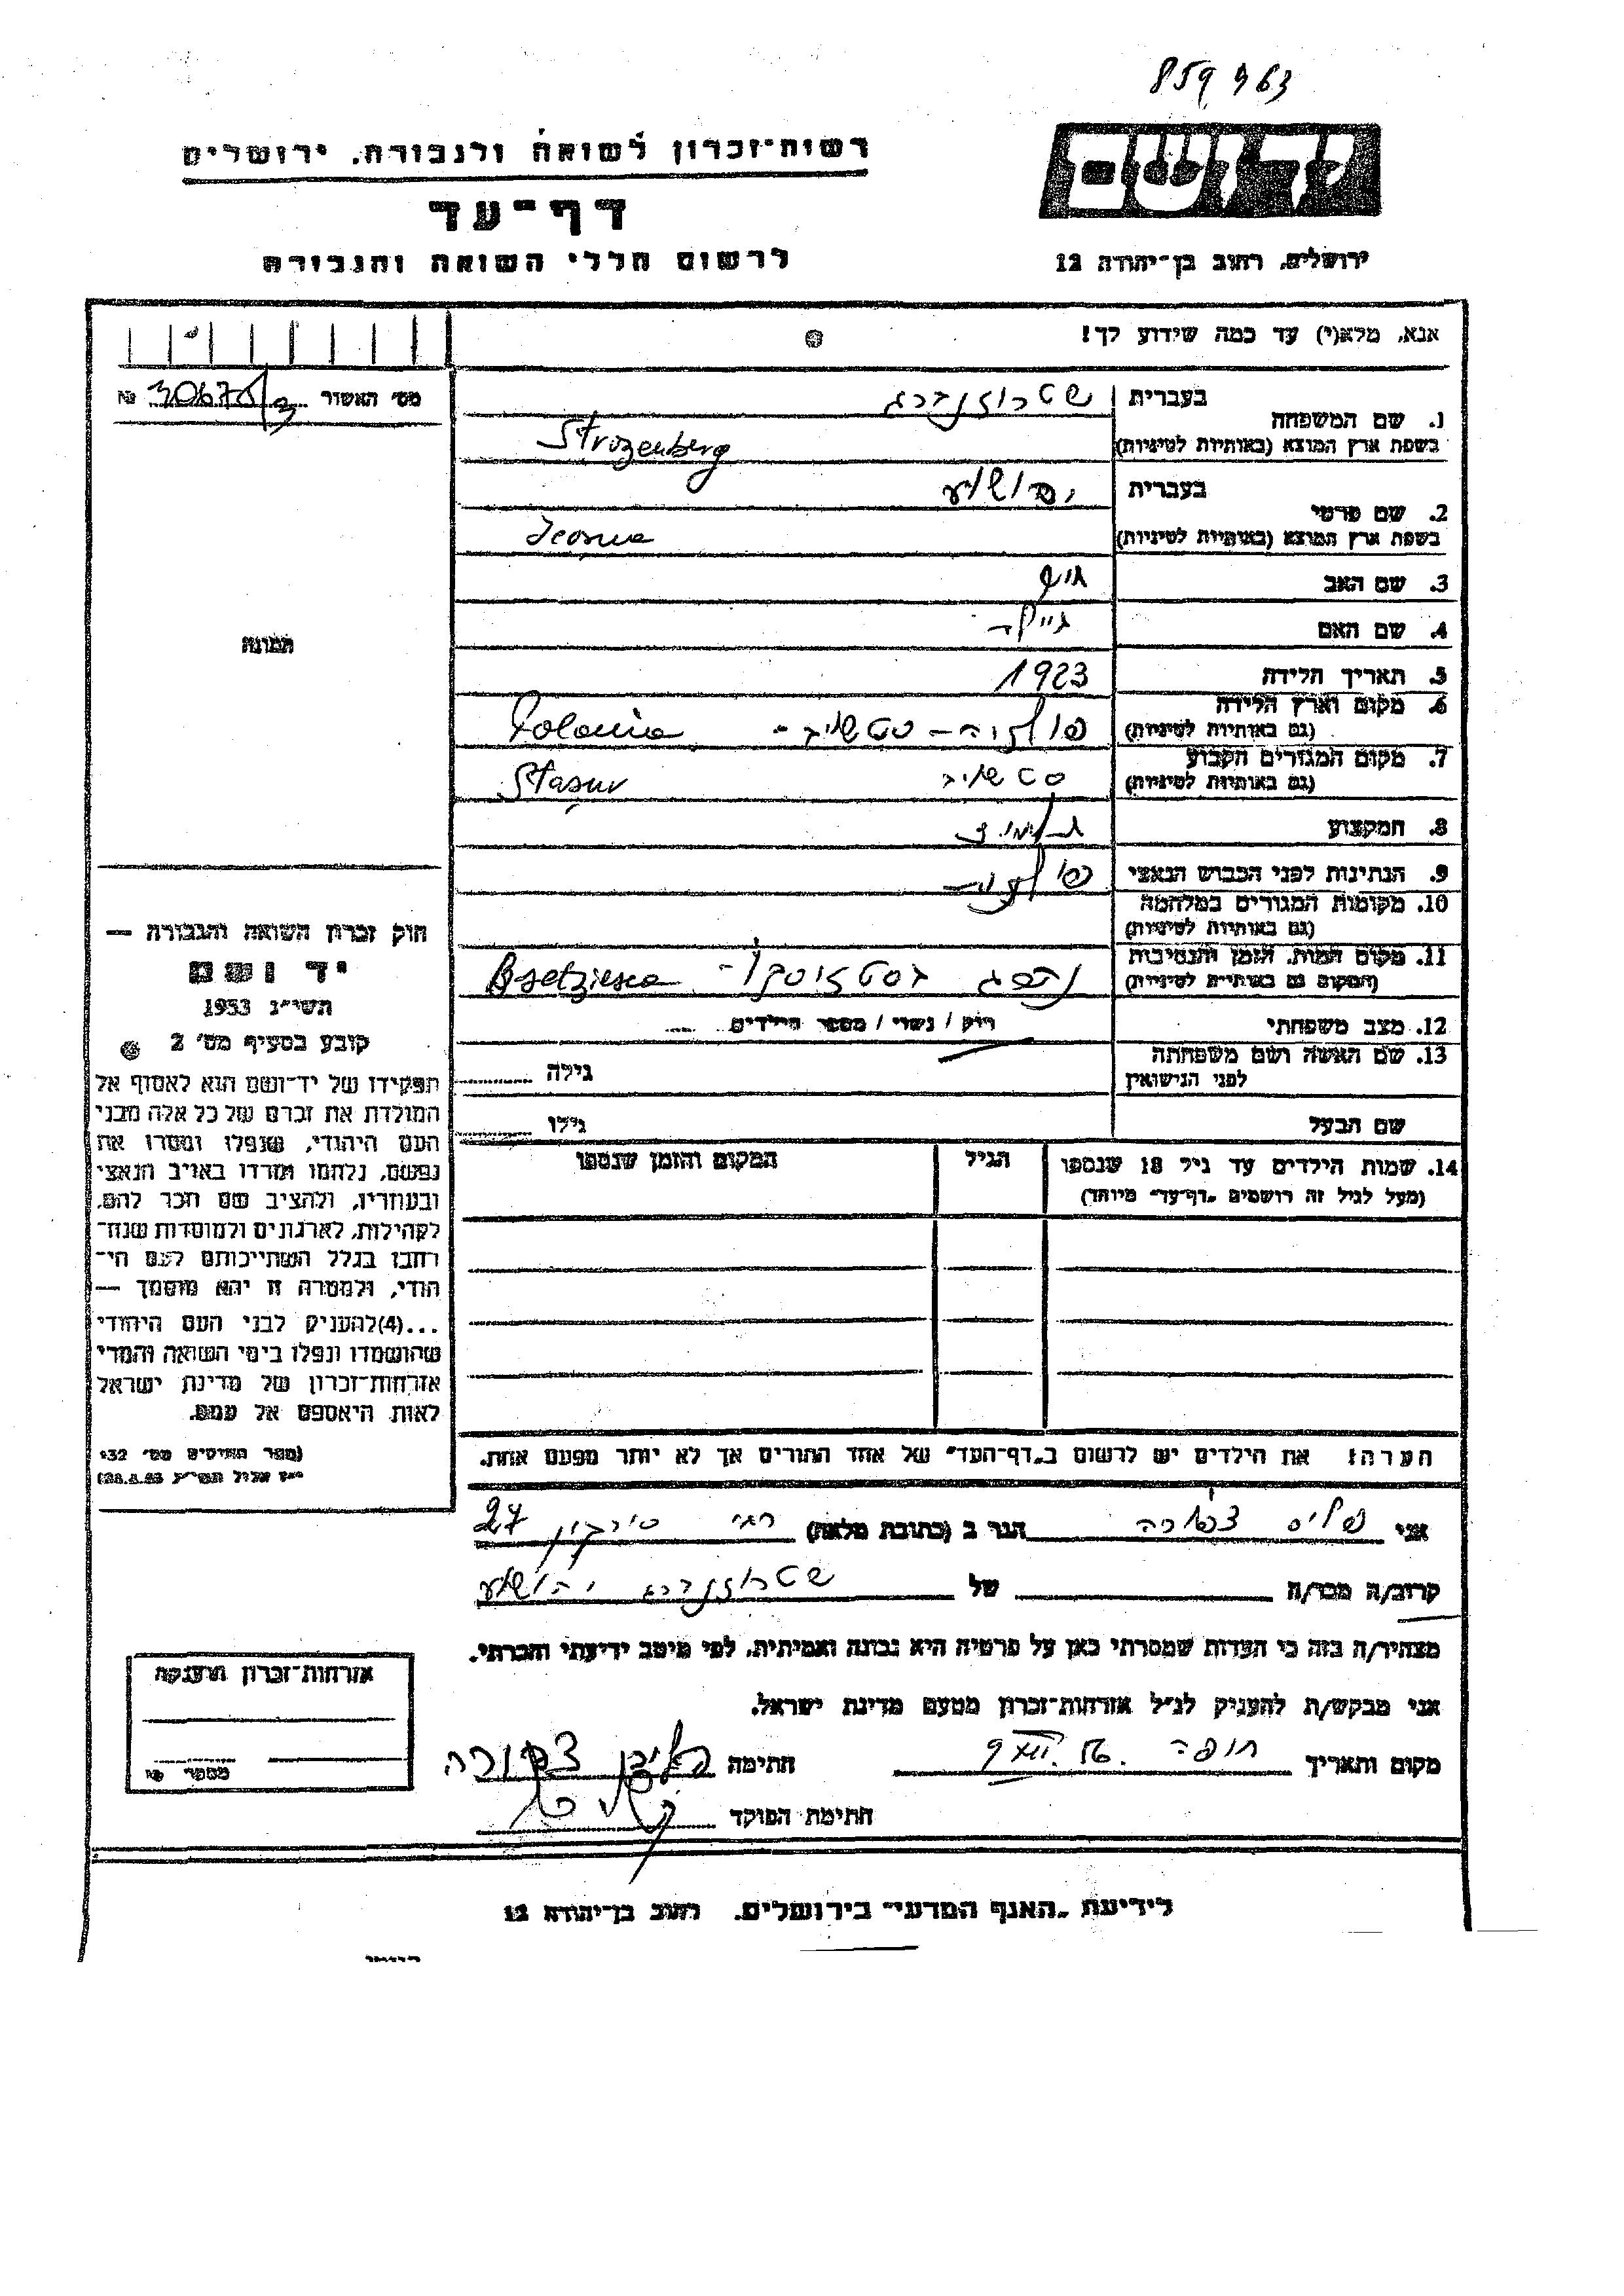 859963
רשות-זכרון לשואה ולגבורה, ירושלים
דף-עד
לרשום חללי השואה והגבורה
יד ושם
ירושלים, רחוב בן-יהודה 12
אנא, מלא(י) עד כמה שידוע לך!
מס׳ האשור № 30675/3
1. שם המשפחה בעברית שטרוזנברג
בשפת ארץ המוצא (באותיות לטיניות) Strozenberg
2. שם פרטי בעברית יהושע
בשפת ארץ המוצא (באותיות לטיניות) Jeosua
3. שם האב
4. שם האם
5. תאריך הלידה 1923
6. מקום וארץ הלידה
(גם באותיות לטיניות) פולניה - סטשוב - Polania
7. מקום המגורים הקבוע
(גם באותיות לטיניות) סטשוב Stasuv
8. המקצוע תלמיד
9. הנתינות לפני הכבוש הנאצי פולנית
10. מקומות המגורים במלחמה
(גם באותיות לטיניות)
11. מקום המות, הזמן והנסיבות
(המקום גם באותיות לטיניות) נהרג
12. מצב משפחתי רווק / נשוי / מספר הילדים
13. שם האשה ושם משפחתה
לפני הנישואין גילה
שם הבעל גילו
14. שמות הילדים עד גיל 18 שנספו הגיל המקום והזמן שנספו
(מעל לגיל זה רושמים „דף-עד״ מיוחד)
הערה: את הילדים יש לרשום ב„דף-העד״ של אחד ההורים אך לא יותר מפעם אחת.
תמונה
חוק זכרון השואה והגבורה —
יד ושם
תשי״ג 1953
קובע בסעיף מס׳ 2
תפקידו של יד-ושם הוא לאסוף אל
המולדת את זכרם של כל אלה מבני
העם היהודי, שנפלו ומסרו את
נפשם, נלחמו ומרדו באויב הנאצי
ובעוזריו, ולהציב שם וזכר להם,
לקהילות, לארגונים ולמוסדות שנח-
רבו בגלל השתייכותם לעם הי-
הודי, ולמטרה זו יהא מוסמך —
...(4)להעניק לבני העם היהודי
שהושמדו ונפלו בימי השואה והמרי
אזרחות-זכרון של מדינת ישראל
לאות היאספם אל עמם.
(ספר החוקים מס׳ 132
י״ז אלול תשי״ג 28.8.53)
אני צפורה הגר ב (כתובת מלאה) סירקין 27
קרוב/ה מכר/ה של שטרוזנברג יהושע
מצהיר/ה בזה כי העדות שמסרתי כאן על פרטיה היא נכונה ואמיתית, לפי מיטב ידיעתי והכרתי.
אני מבקש/ת להעניק לנ״ל אזרחות-זכרון מטעם מדינת ישראל.
מקום ותאריך חיפה חתימה צפורה
חתימת הפוקד
אזרחות-זכרון הוענקה
מספר
לידיעת „האגף המדעי״ בירושלים, רחוב בן-יהודה 12